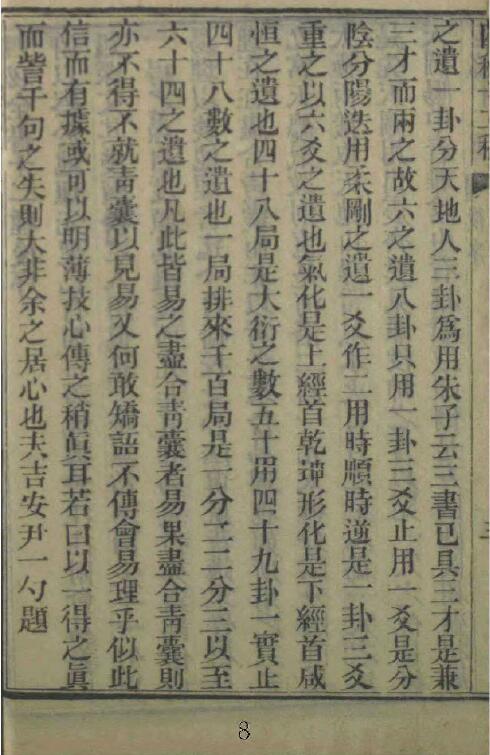 之遺一卦分天地人三卦爲用朱子云三書已具三才是兼
三才而兩之故六之遺八卦只用一卦三爻止用一爻是分
陰分陽迭用柔剛之遺一爻作二用時順時逆是一卦三爻
重之以六爻之遺也氣化是上經首乾坤形化是下經首咸
恒之遺也四十八局是大衍之數五十用四十九卦一實止
四十八數之遺也一局排來千百局是一分二二分三以至
六十四之遺也凡此皆易之盡合靑囊者易果盡合靑囊則
亦不得不就靑囊以見易又何敢矯語不傳會易理乎似此
信而有據或可以明薄技心傳之稍眞耳若曰以一得之眞
而訾千句之失則大非余之居心也夫吉安尹一勺題
8